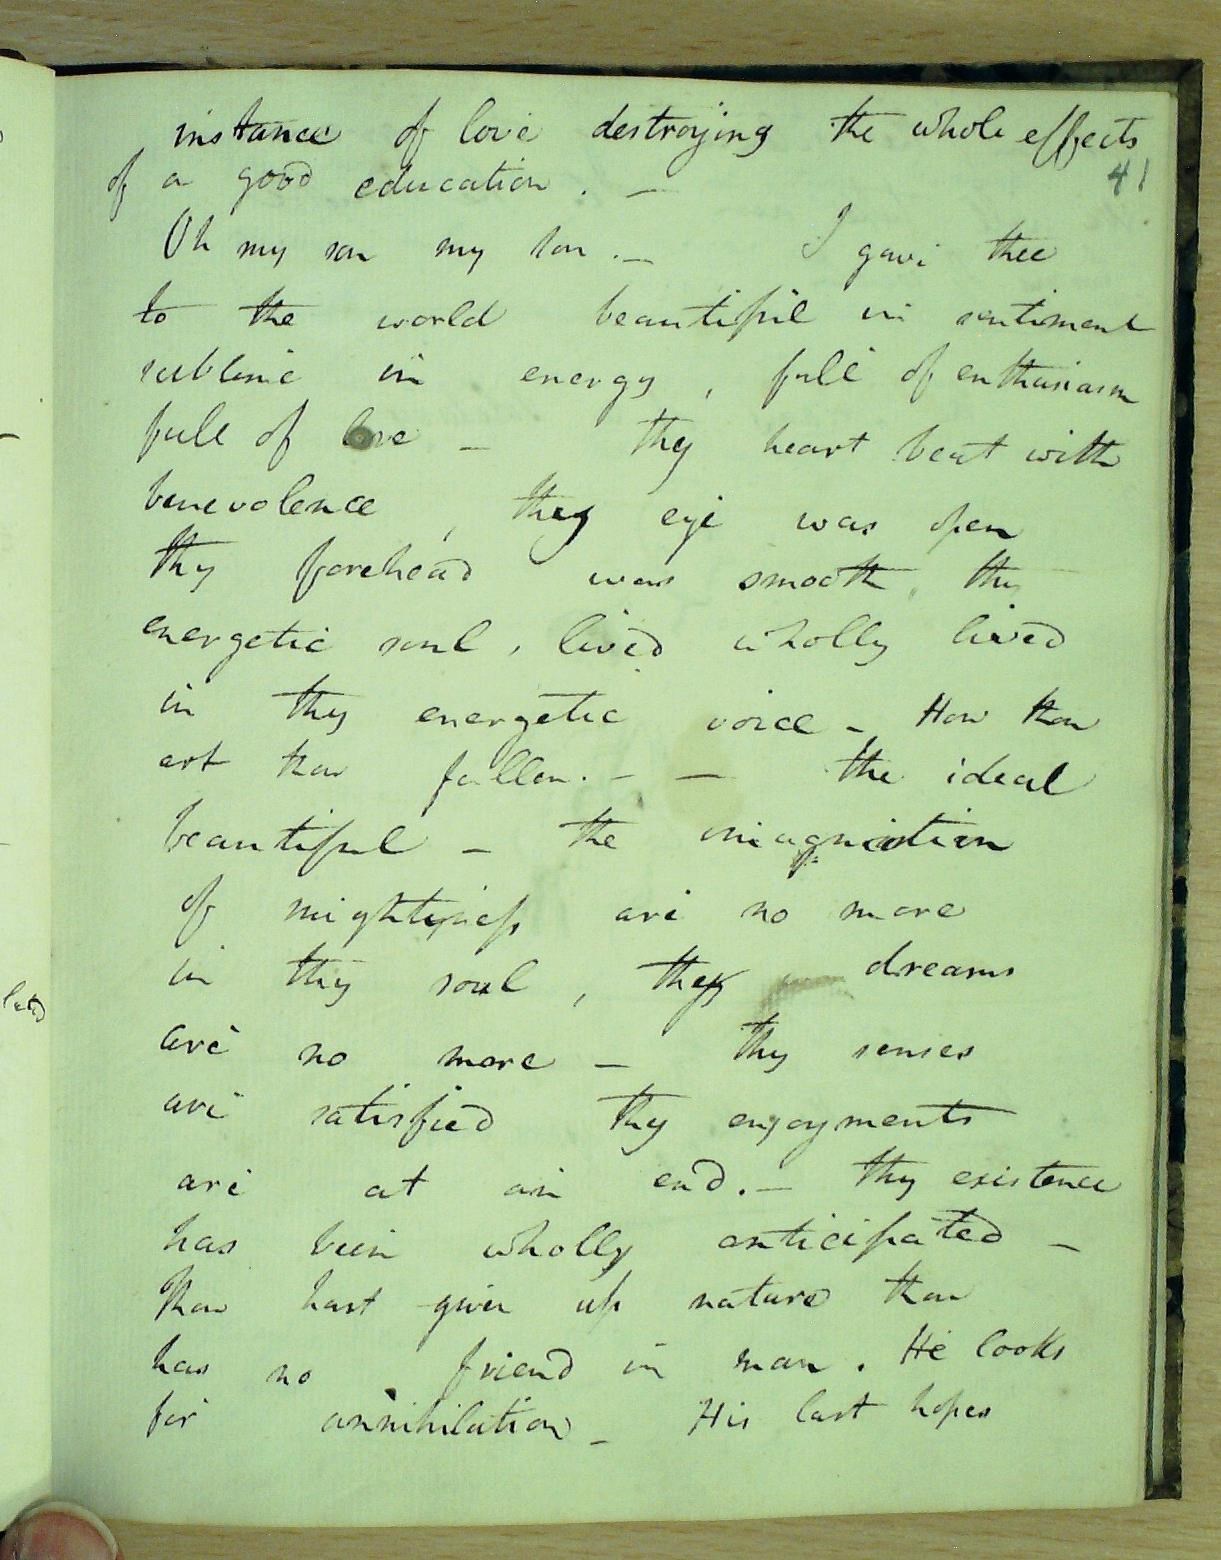 instance of love destroying the whole effects
41
of a good education. —
Oh my son my son. — I gave thee
to the world beautiful in sentiment
sublime in energy, full of enthusiasm
full of love — thy heart beat with
benevolence, thy eye was open
thy forehead was smooth, thy
energetic soul, lived wholly lived
in thy energetic voice — How thou
art thou fallen. — — the ideal
beautiful — the imagination
of mightiness are no more
in thy soul, they dreams
are no more — thy senses
are satisfied thy enjoyments
are at an end. — thy existence
has been wholly anticipated —
thou hast given up nature thou
has no friend in man. He looks
for annihilation — His last hopes